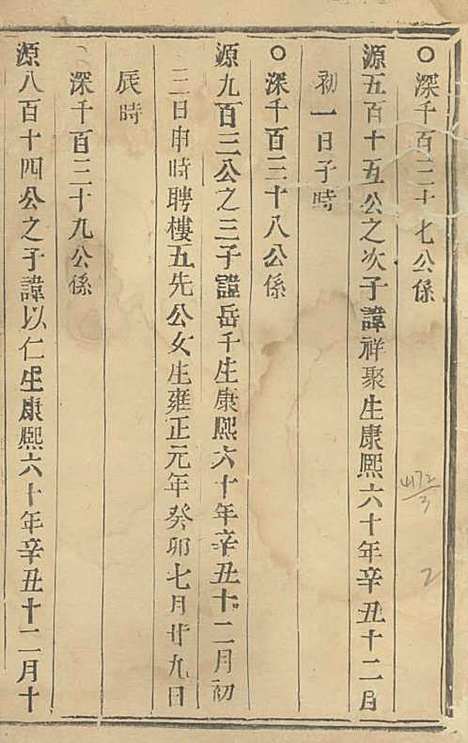 ○深千百三十七公係
源五百十五公之次子諱祥聚生康熙六十年辛丑十二月
初一日子時
○深千百三十八公係
源九百三公之三子諱岳千生康熙六十年辛丑十二月初
三日申時聘樓五先公女生雍正元年癸卯七月廿九日
辰時
深千百三十九公係
源八百十四公之子諱以仁生康熙六十年辛丑十二月十
2